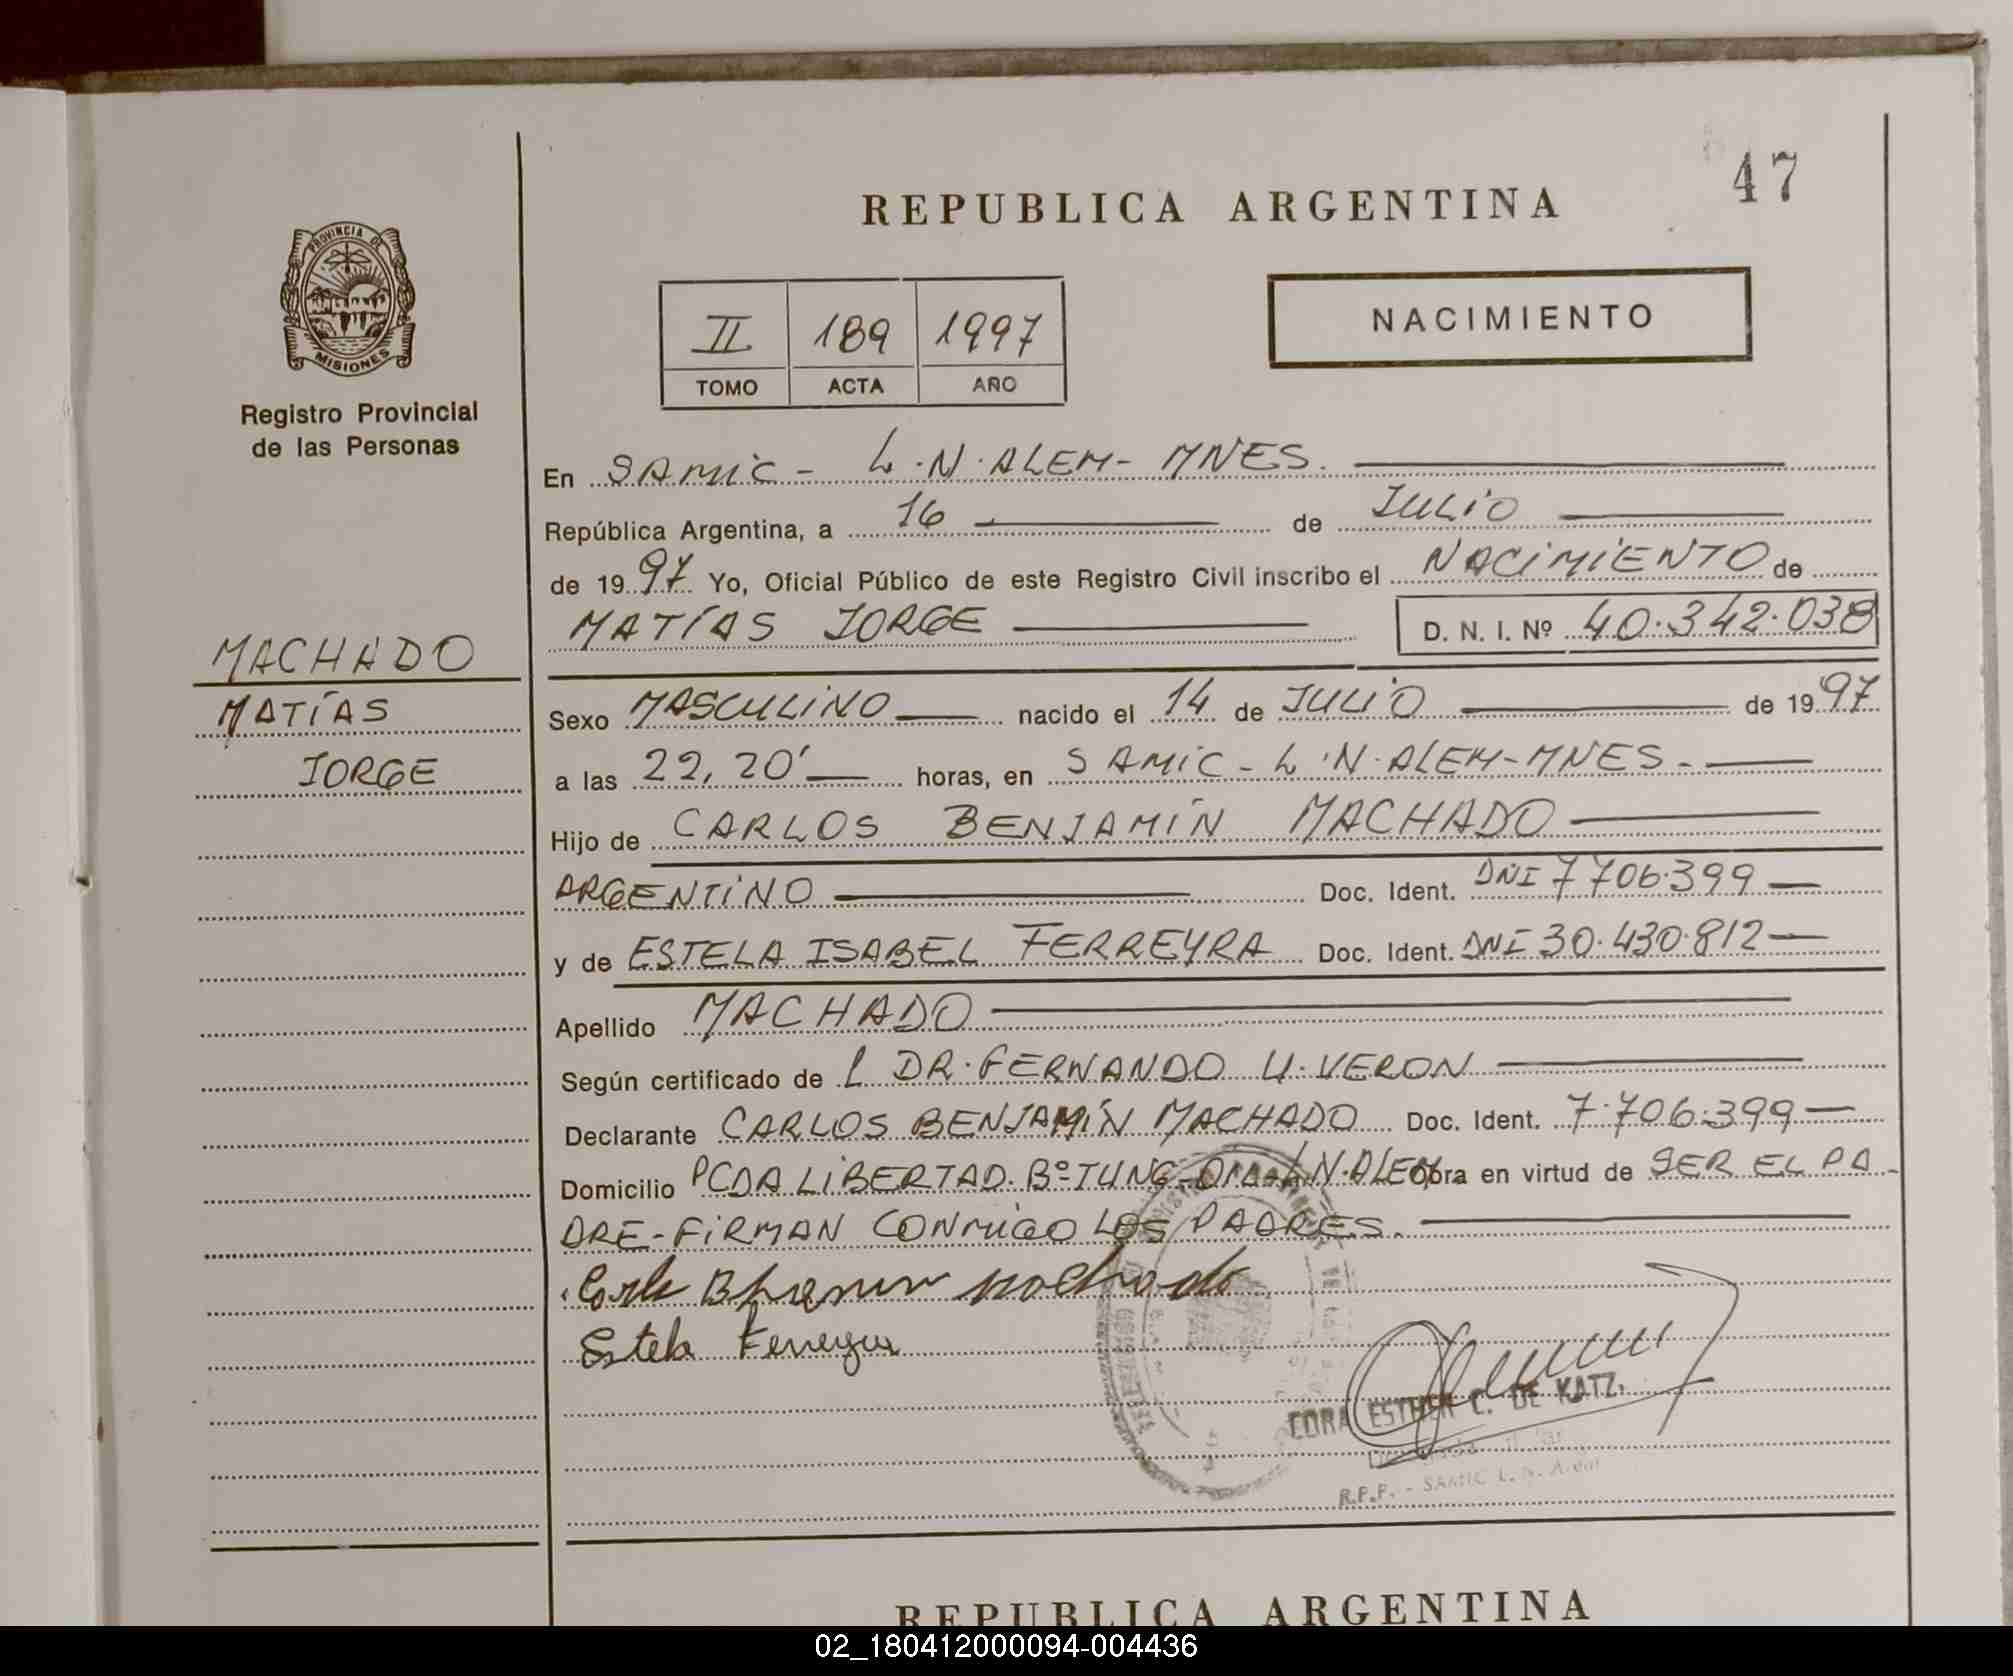 47
REPUBLICA ARGENTINA
PROVINCIA DE
MISIONES
Registro Provincial
de las Personas
II 189 1997
TOMO ACTA AÑO
NACIMIENTO
En SAMIC - L.N.ALEM - MNES.
República Argentina, a 16 de JULIO
de 1997 Yo, Oficial Público de este Registro Civil inscribo el NACIMIENTO de
MATÍAS JORGE D. N. I. Nº 40.342.038
MACHADO
MATÍAS
JORGE
Sexo MASCULINO nacido el 14 de JULIO de 1997
a las 22,20' horas, en SAMIC - L.N.ALEM-MNES.
Hijo de CARLOS BENJAMÍN MACHADO
ARGENTINO Doc. Ident. DNI 7706.399
y de ESTELA ISABEL FERREYRA Doc. Ident. DNI 30.430.812
Apellido MACHADO
Según certificado de L DR. FERNANDO U. VERON
Declarante CARLOS BENJAMÍN MACHADO Doc. Ident. 7.706.399
Domicilio PCDA LIBERTAD. Bº L.N.ALEM obra en virtud de SER EL PA-
DRE - FIRMAN CONMIGO LOS PADRES.
Machado
Estela Ferreyra
ESTHER C. DE KATZ
R.P.P. - SAMIC L. N. Alem
REPUBLICA ARGENTINA
02_180412000094-004436